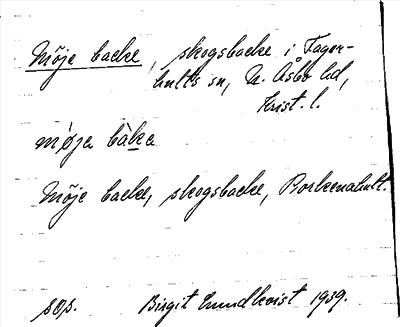 Möje backe, skogsbacke i Fager-
hults sn, N. Åsbo hd,
Krist. l.
möje bàke
Möje backe, skogsbacke, Borkenahult.
sop. Birgit Lundkvist 1939.